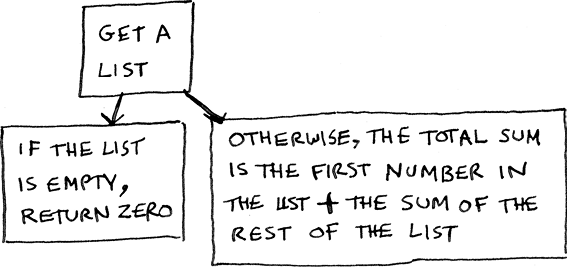 GET A
LIST
IF THE LIST
IS EMPTY,
RETURN ZERO
OTHERWISE, THE TOTAL SUM
IS THE FIRST NUMBER IN
THE LIST + THE SUM OF THE
REST OF THE LIST